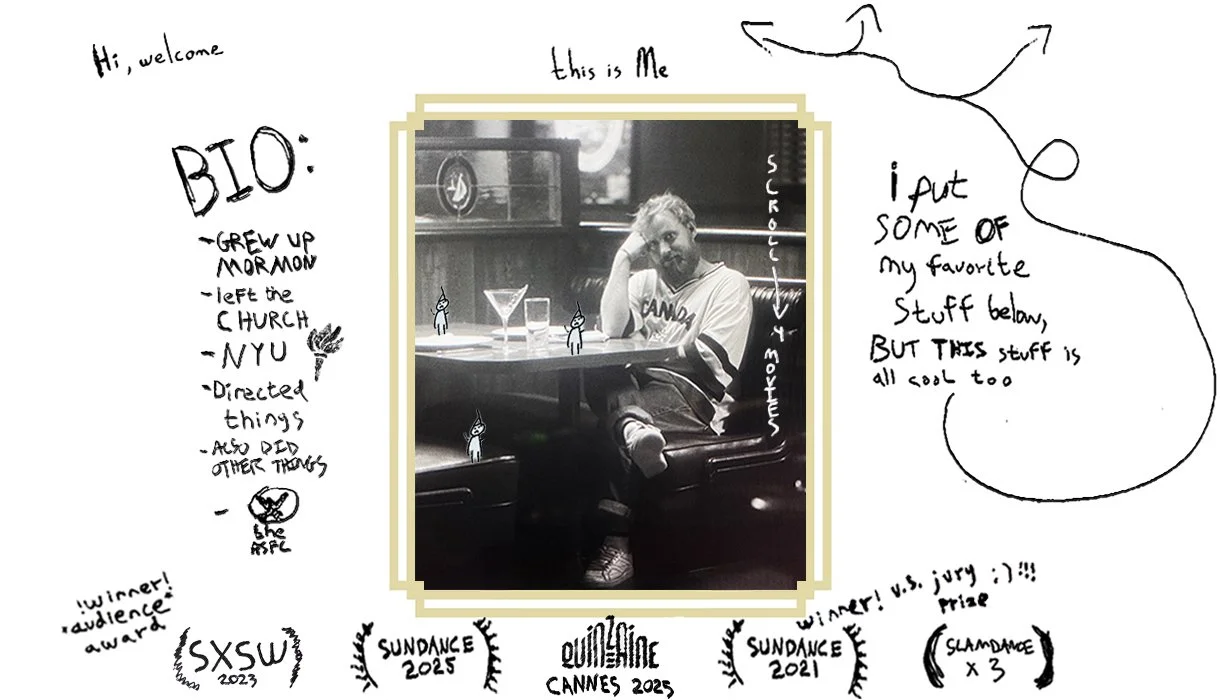 Hi, welcome
this is Me
BIO:
- GREW UP
MORMON
- left the
CHURCH
- NYU
- Directed
things
- ALSO DID
OTHER THINGS
-
the
ASFC
CANADA
SCROLL
MOVIES
i put
SOME OF
my favorite
stuff below,
BUT THIS stuff is
all cool too
!winner!
*audience*
award
SXSW
2023
SUNDANCE
2025
QUINZAINE
CANNES 2025
winner! U.S. jury :)!!!
prize
SUNDANCE
2021
SLAMDANCE
x 3